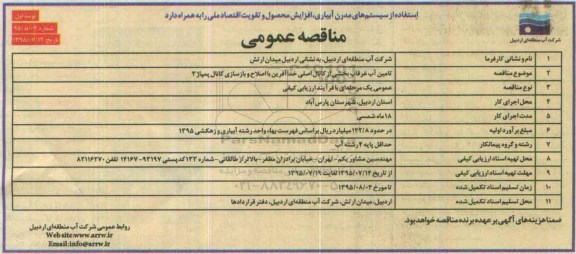 استفاده از سیستم‌های مدرن آبیاری، افزایش محصول و تقویت اقتصاد ملی را به همراه دارد
نوبت اول
شرکت آب منطقه‌ای اردبیل
مناقصه عمومی
۱ نام و نشانی کارفرما شرکت آب منطقه‌ای اردبیل، به نشانی اردبیل میدان ارتش
۲ موضوع مناقصه تامین آب غرقاب بخشی از کانال اصلی خداآفرین با اصلاح و بازسازی کانال پمپاژ ۳
۳ نوع مناقصه عمومی یک مرحله‌ای با فرآیند ارزیابی کیفی
۴ محل اجرای کار استان اردبیل، شهرستان پارس آباد
۵ مدت اجرای کار ۱۸ ماه شمسی
۶ مبلغ برآورد اولیه در حدود ۱۴۲/۸ میلیارد ریال بر اساس فهرست بهاء واحد رشته آبیاری و زهکشی ۱۳۹۵
۷ رشته و گروه پیمانکار حداقل پایه ۴ رشته آب
۸ محل تهیه اسناد ارزیابی کیفی مهندسین مشاور یکم - تهران - خیابان برادران مظفر - بالاتر از طالقانی - شماره ۱۳۳ کدپستی ۹۳۱۹۷-۱۴۱۶۷ تلفن ۸۳۱۶۲۷۰
۹ مهلت تهیه اسناد ارزیابی کیفی از تاریخ ۱۳۹۵/۰۷/۱۴ لغایت ۱۳۹۵/۰۷/۱۹
۱۰ زمان تسلیم اسناد تکمیل شده تا مورخ ۱۳۹۵/۰۸/۰۳
۱۱ محل تسلیم اسناد تکمیل شده اردبیل، میدان ارتش، شرکت آب منطقه‌ای اردبیل، دفتر قراردادها
ضمنا هزینه‌های آگهی بر عهده برنده مناقصه خواهد بود.
روابط عمومی شرکت آب منطقه‌ای اردبیل
Website:www.arrw.ir
Email:info@arrw.ir